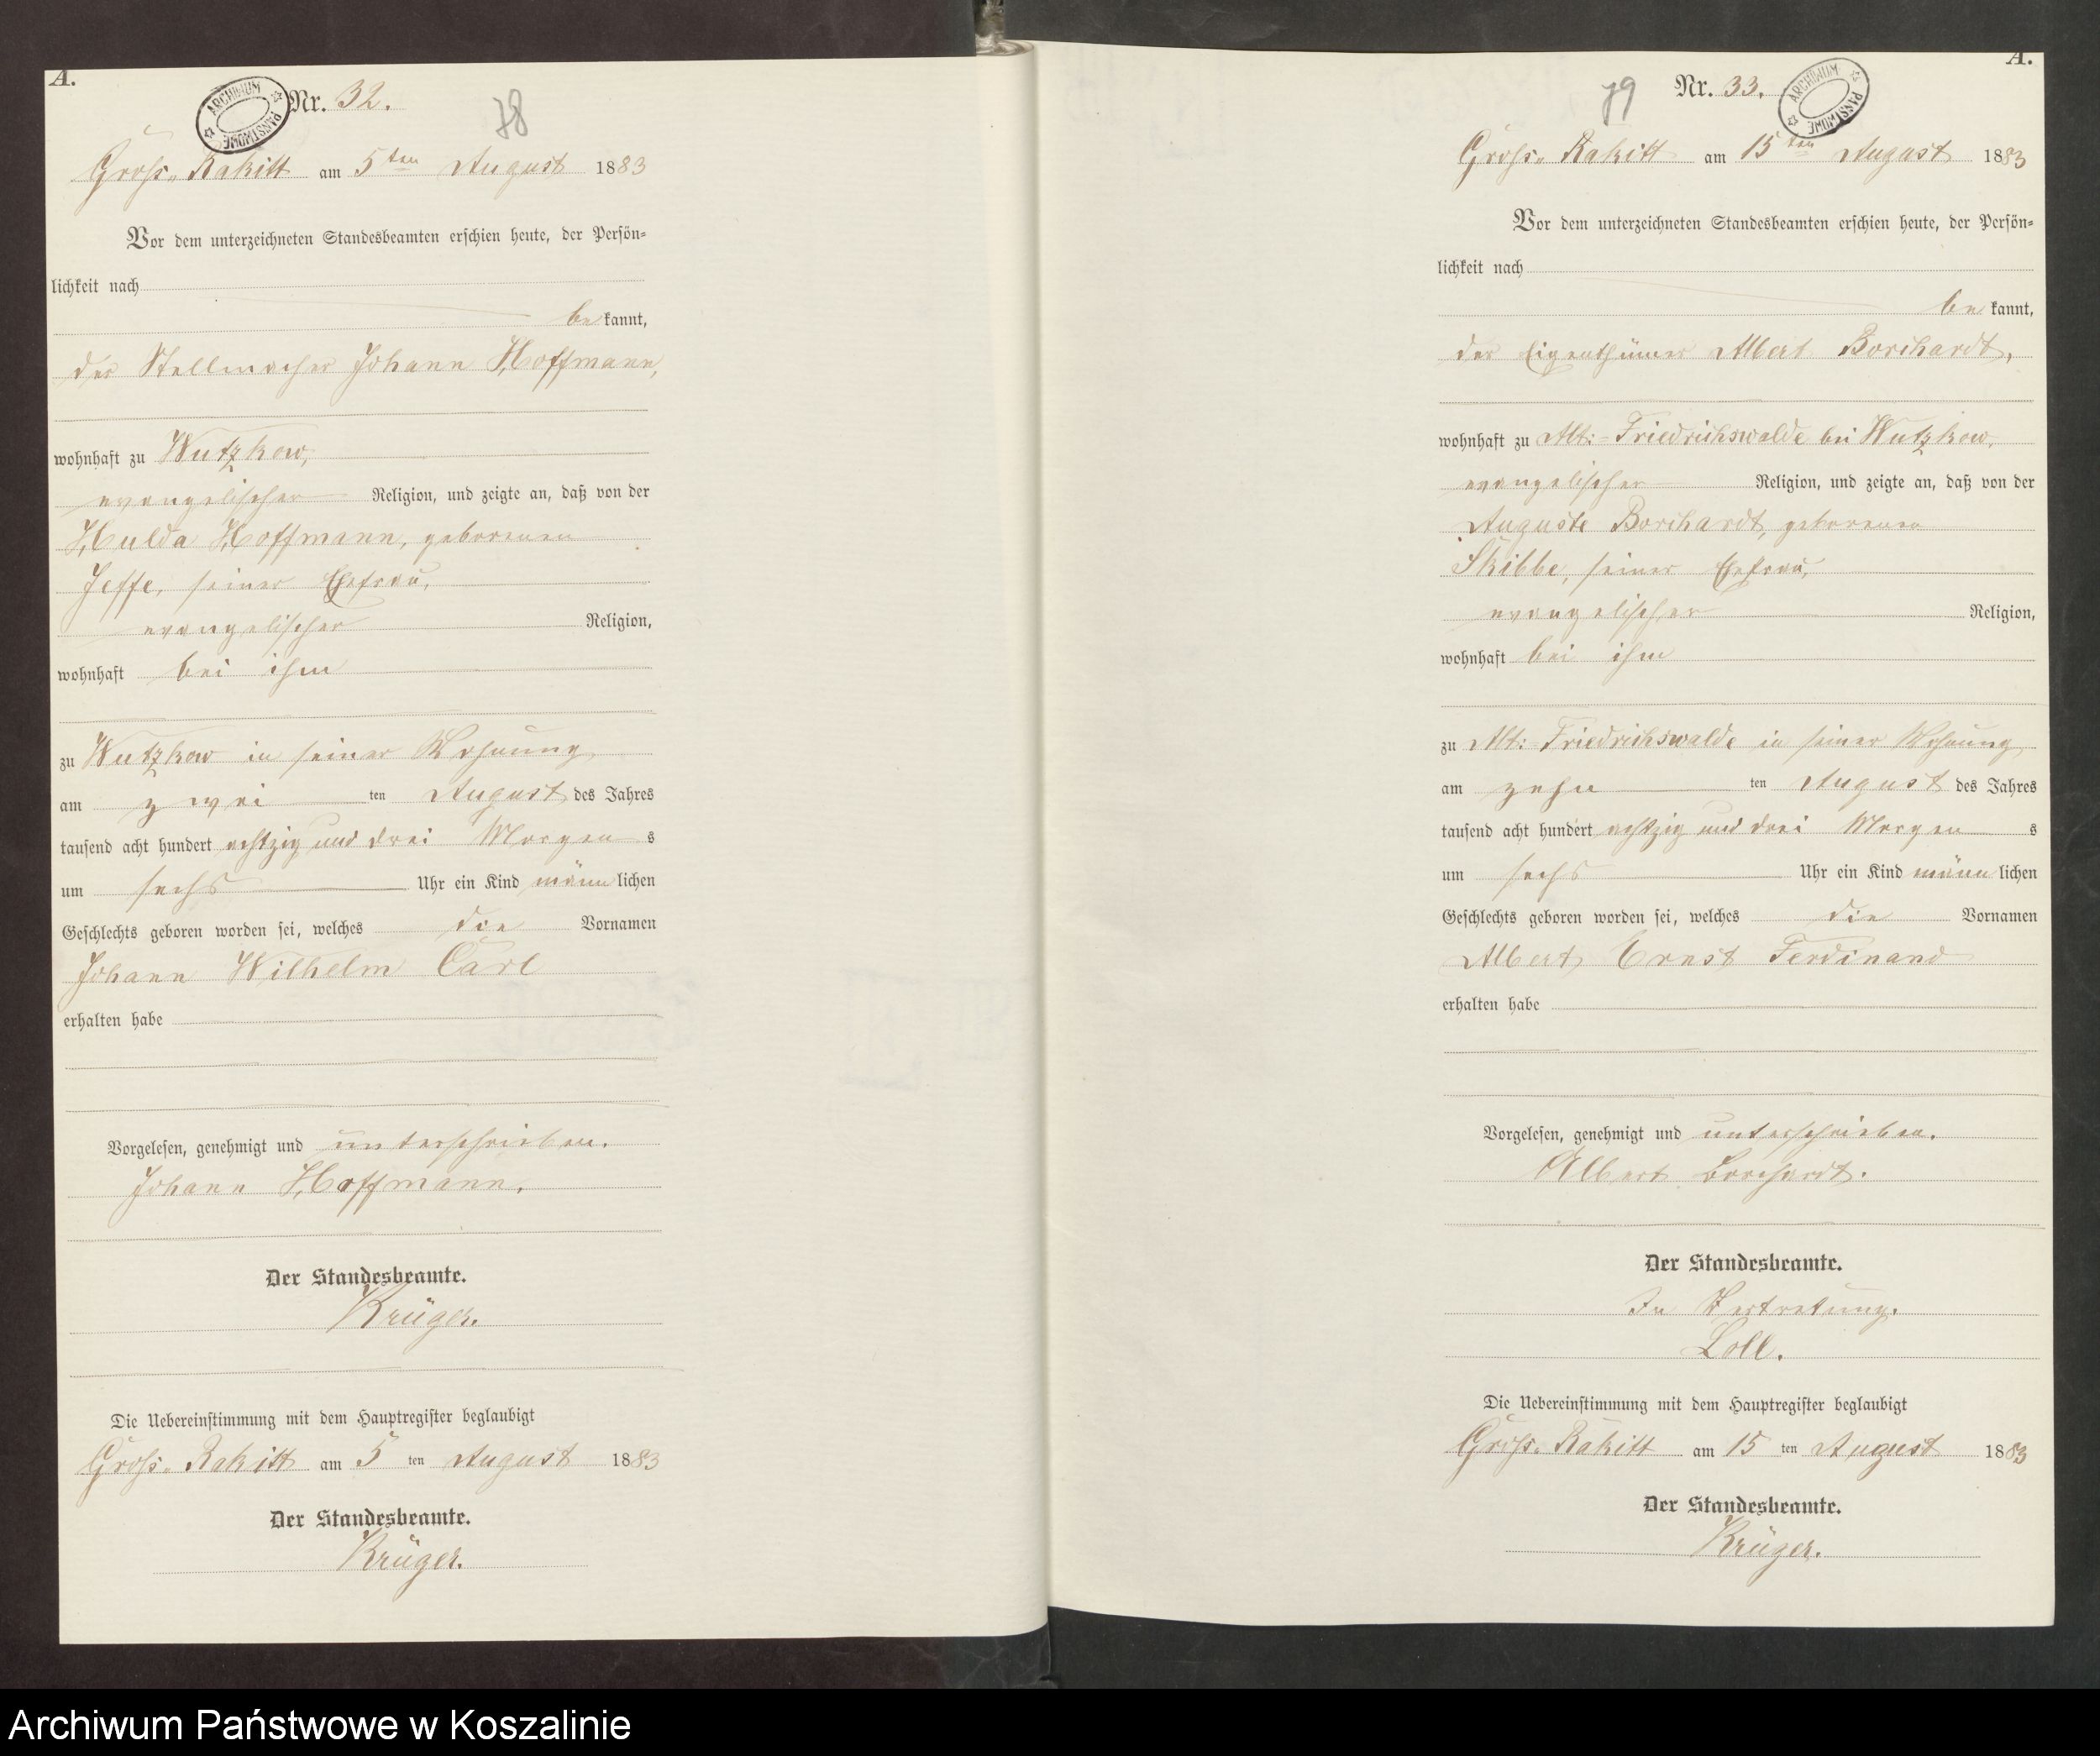 A.
ARCHIWUM PAŃSTWOWE
Nr. 32.
78
Groß- Rakitt am 5ten August 1883
Vor dem unterzeichneten Standesbeamten erschien heute, der Persön-
lichkeit nach
be kannt,
der Stellmacher Johann Hoffmann,
wohnhaft zu Wutzkow,
evangelischer Religion, und zeigte an, daß von der
Hulda Hoffmann, geborenen
Jeffe, seiner Ehefrau,
evangelischer Religion,
wohnhaft bei ihm
zu Wutzkow in seiner Wohnung
am zwei ten August des Jahres
tausend acht hundert achtzig und drei Morgen s
um sechs Uhr ein Kind männ lichen
Geschlechts geboren worden sei, welches die Vornamen
Johann Wilhelm Carl
erhalten habe
Vorgelesen, genehmigt und unterschrieben.
Johann Hoffmann.
Der Standesbeamte.
Krüger.
Die Uebereinstimmung mit dem Hauptregister beglaubigt
Groß- Rakitt am 5 ten August 1883
Der Standesbeamte.
Krüger.
A.
79
Nr. 33.
ARCHIWUM PAŃSTWOWE
Groß- Rakitt am 15ten August 1883
Vor dem unterzeichneten Standesbeamten erschien heute, der Persön-
lichkeit nach
be kannt,
der Eigenthümer Albert Borchardt,
wohnhaft zu Alt:-Friedrichswalde bei Wutzkow,
evangelischer Religion, und zeigte an, daß von der
Auguste Borchardt, geborenen
Skibbe, seiner Ehefrau,
evangelischer Religion,
wohnhaft bei ihm
zu Alt: Friedrichswalde in seiner Wohnung
am zehn ten August des Jahres
tausend acht hundert achtzig und drei Morgen s
um sechs Uhr ein Kind männ lichen
Geschlechts geboren worden sei, welches die Vornamen
Albert Ernst Ferdinand
erhalten habe
Vorgelesen, genehmigt und unterschrieben.
Albert Borchardt.
Der Standesbeamte.
In Vertretung.
Loll.
Die Uebereinstimmung mit dem Hauptregister beglaubigt
Groß- Rakitt am 15 ten August 1883
Der Standesbeamte.
Krüger.
Archiwum Państwowe w Koszalinie